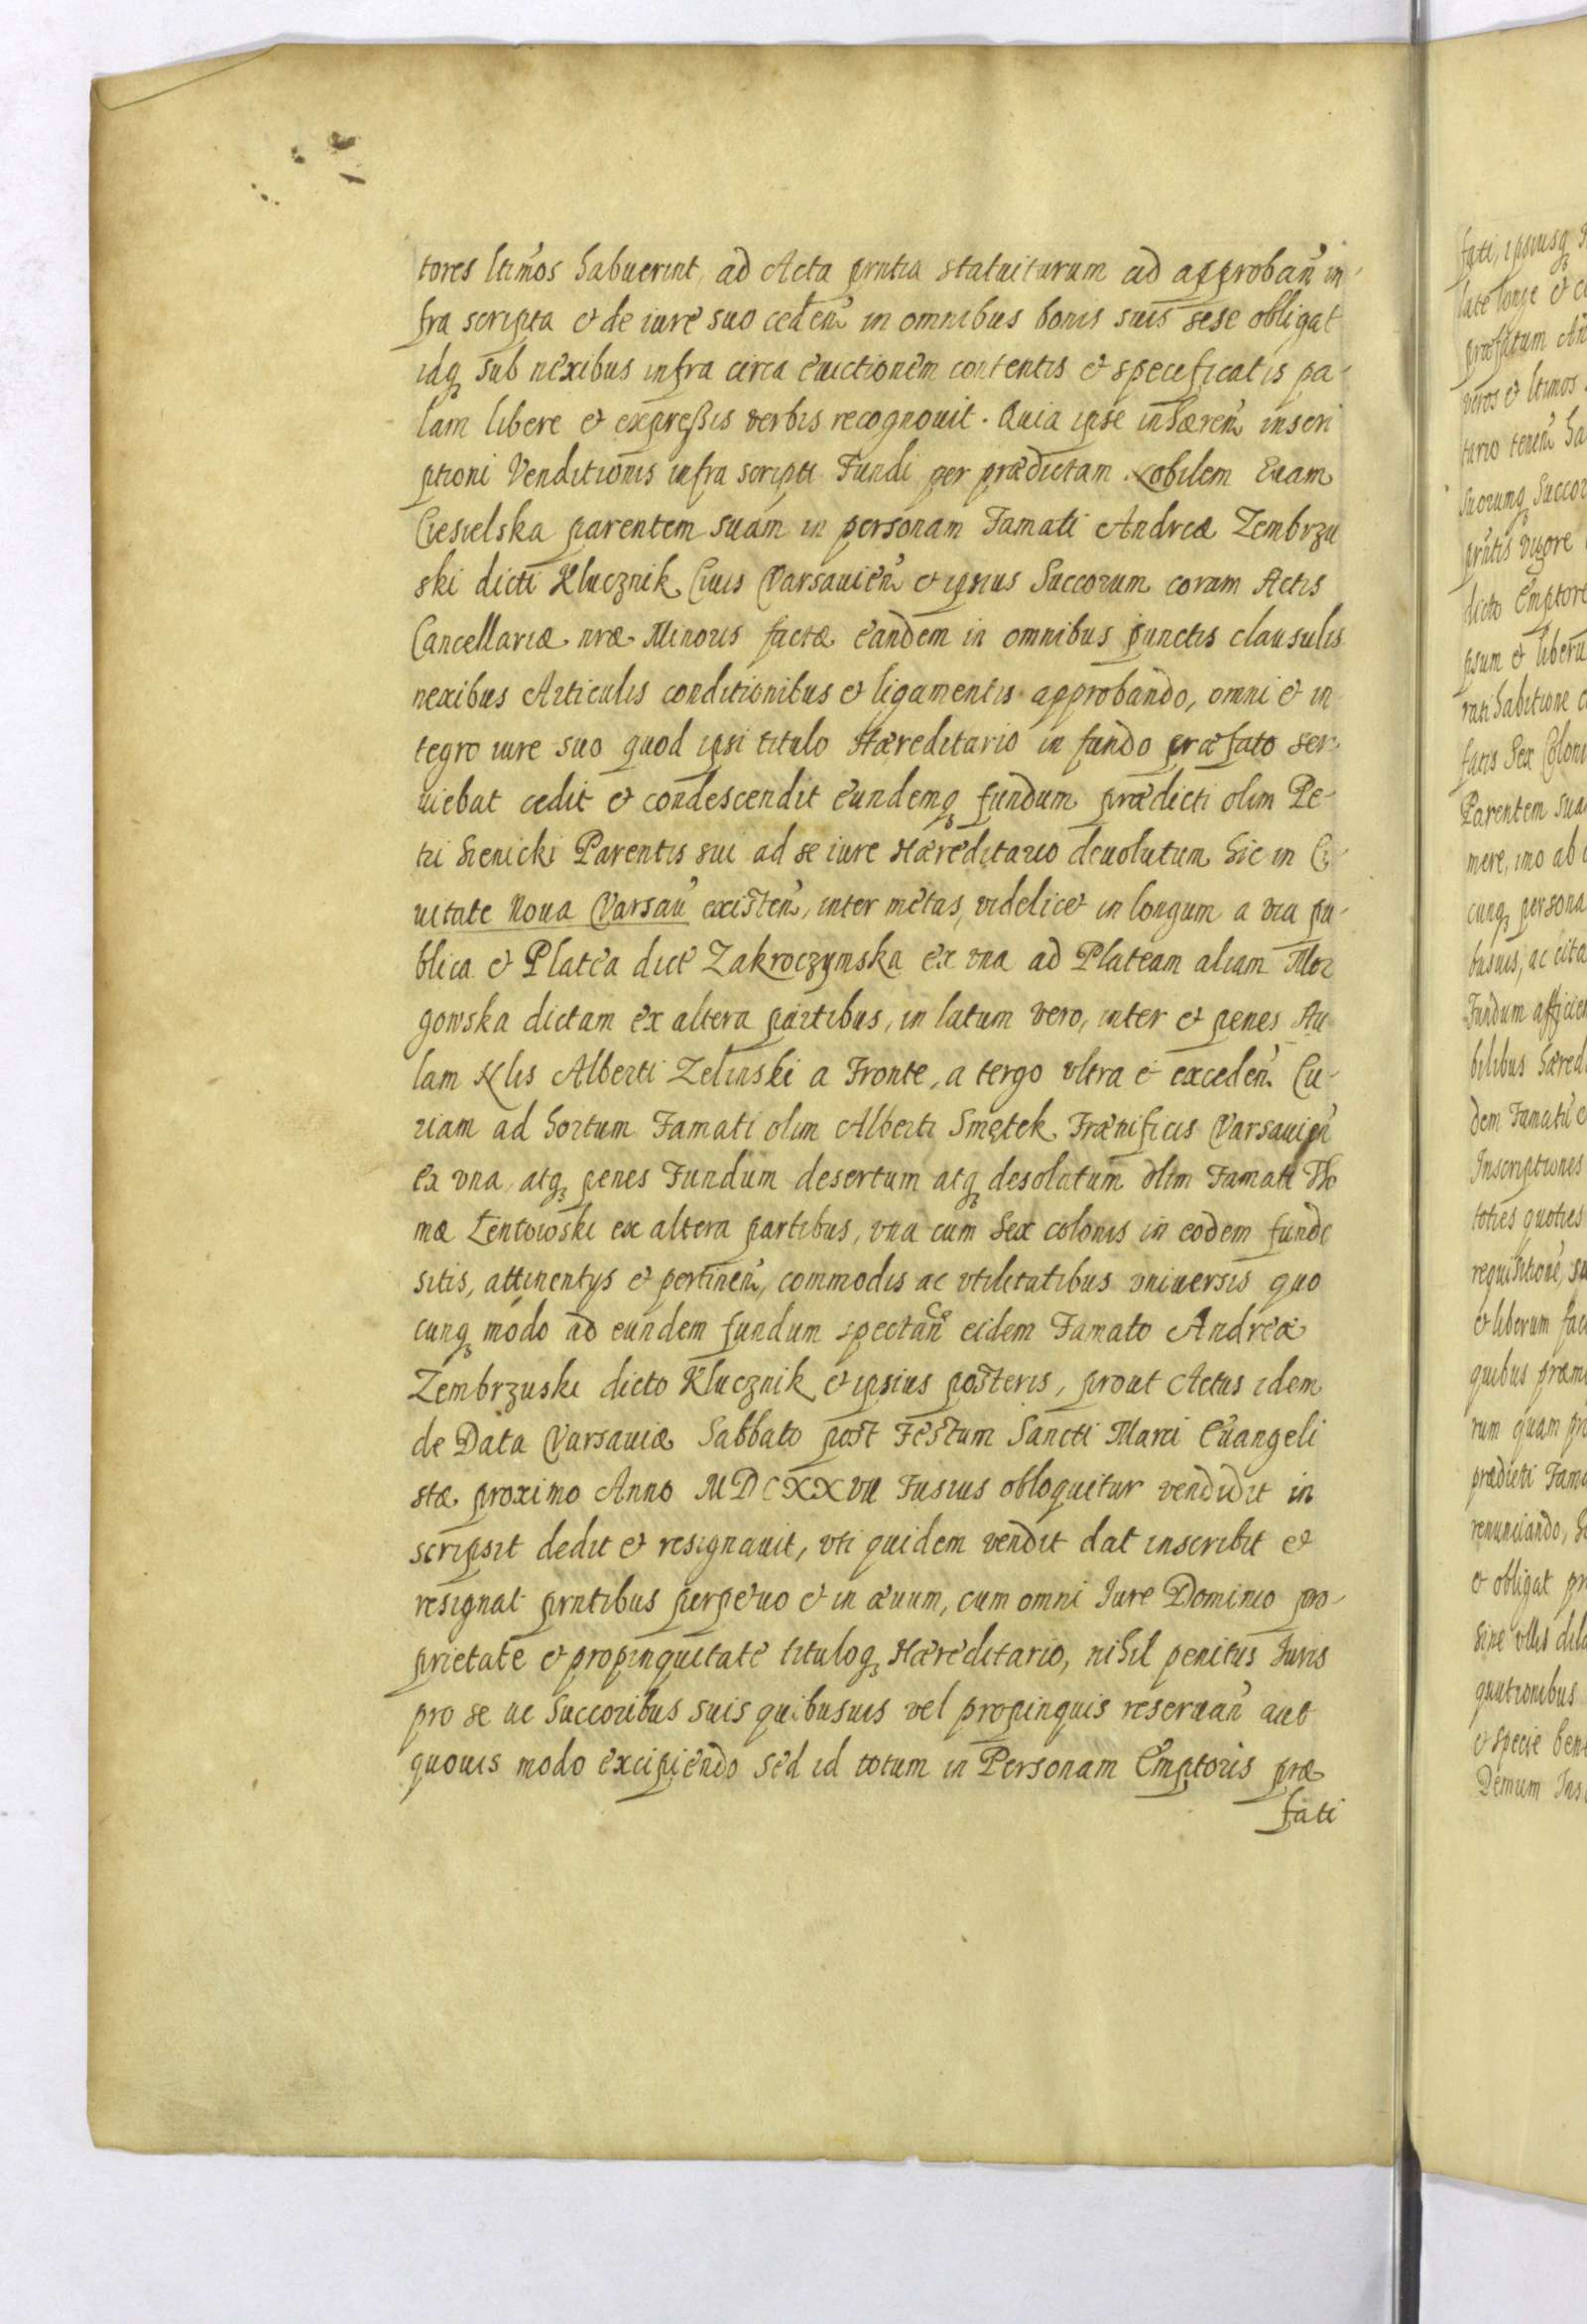 tores ltimos habuerint, ad Acta prntia statuiturum ad approban in-
fra scripta et de iure suo ceden in omnibus bonis suis sese obligat
idq sub nexibus infra circa euictionem contentis et specificatis pa-
lam libere et expreßis verbis recognouit. Quia ipse inhæren inscri
ptioni Venditionis infra scripti Fundi per prædictam Nobilem Euam
Ciesielska parentem suam in personam Famati Andreæ Zembrzu
ski dicti Klucznik Ciuis Varsauien et ipsius Succorum coram Actis
Cancellariæ nræ Minoris factæ eandem in omnibus punctis clausulis
nexibus Articulis conditionibus et ligamentis approbando, omni et in
tegro iure suo quod ipsi titulo Hæreditario in fundo præfato ser
uiebat cedit et condescendit eundemq fundum prædicti olim Pe-
tri Sienicki Parentis sui ad se iure Hæreditario deuolutum hic in Ci-
uitate Noua Varsau existen, inter metas, videlicet in longum a via pu-
blica et Platea dict Zakroczymska ex vna ad Plateam aliam Mor
gowska dictam ex altera partibus, in latum vero, inter et penes Au
lam Nlis Alberti Zelinski a Fronte, a tergo vltra et exceden Cu-
riam ad hortum Famati olim Alberti Smętek Frænificis Varsauien
ex vna atq penes Fundum desertum atq desolatum olim Famati Tho
mæ Łentowski ex altera partibus, vna cum Sex colonis in eodem fundo
sitis, attinentys et pertinen, commodis ac vtilitatibus vniuersis quo
cunq modo ad eundem fundum spectan eidem Famato Andreæ
Zembrzuski dicto Klucznik et ipsius posteris, prout Actus idem
de Data Varsauiæ Sabbato post Festum Sancti Marci Euangeli
stæ proximo Anno MDCXXVII Fusius obloquitur vendidit in
scripsit dedit et resignauit, vti quidem vendit dat inscribit et
resignat prntibus perpetuo et in æuum, cum omni Iure Dominio pro-
prietate et propinquitate tituloq Hæreditario, nihil penitus Iuris
pro se ac Succoribus suis quibusuis vel propinquis reseruan aut
quouis modo excipiendo sed id totum in Personam Emptoris præ
fati